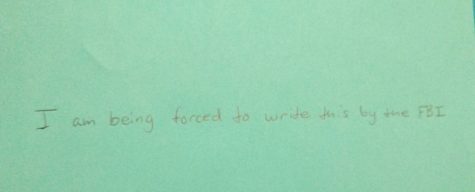 I am being forced to write this by the FBI